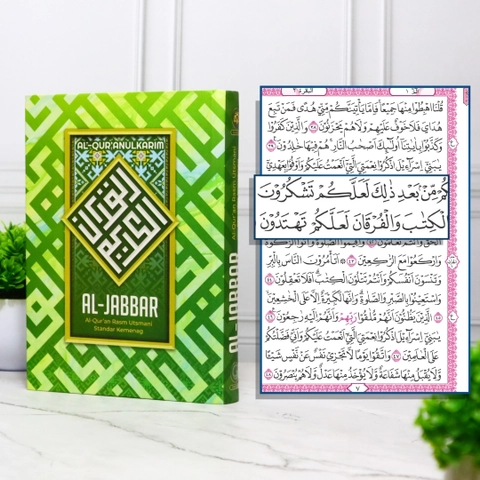 AL-QUR'ANULKARIM
القرآن الكريم
AL-JABBAR
Al-Qur'an Rasm Utsmani
Standar Kemenag
Al-Qur'an Rasm Utsmani
AL-JABBAR
البقرة ٢
قُلْنَا اهْبِطُوْا مِنْهَا جَمِيْعًا فَاِمَّا يَأْتِيَنَّكُمْ مِّنِّيْ هُدًى فَمَنْ تَبِعَ
هُدَايَ فَلَا خَوْفٌ عَلَيْهِمْ وَلَا هُمْ يَحْزَنُوْنَ ٣٨ وَالَّذِيْنَ كَفَرُوْا
وَكَذَّبُوْا بِاٰيٰتِنَآ اُولٰۤىِٕكَ اَصْحٰبُ النَّارِ هُمْ فِيْهَا خٰلِدُوْنَ ٣٩
يٰبَنِيْٓ اِسْرَاۤءِيْلَ اذْكُرُوْا نِعْمَتِيَ الَّتِيْٓ اَنْعَمْتُ عَلَيْكُمْ وَاَوْفُوْا بِعَهْدِيْٓ
كُمْ مِّنْۢ بَعْدِ ذٰلِكَ لَعَلَّكُمْ تَشْكُرُوْنَ
لْكِتٰبَ وَالْفُرْقَانَ لَعَلَّكُمْ تَهْتَدُوْنَ
وَارْكَعُوْا مَعَ الرّٰكِعِيْنَ ٤٣ اَتَأْمُرُوْنَ النَّاسَ بِالْبِرِّ
وَتَنْسَوْنَ اَنْفُسَكُمْ وَاَنْتُمْ تَتْلُوْنَ الْكِتٰبَ اَفَلَا تَعْقِلُوْنَ ٤٤
وَاسْتَعِيْنُوْا بِالصَّبْرِ وَالصَّلٰوةِ وَاِنَّهَا لَكَبِيْرَةٌ اِلَّا عَلَى الْخٰشِعِيْنَ ٤٥
الَّذِيْنَ يَظُنُّوْنَ اَنَّهُمْ مُّلٰقُوْا رَبِّهِمْ وَاَنَّهُمْ اِلَيْهِ رٰجِعُوْنَ ٤٦
يٰبَنِيْٓ اِسْرَاۤءِيْلَ اذْكُرُوْا نِعْمَتِيَ الَّتِيْٓ اَنْعَمْتُ عَلَيْكُمْ وَاَنِّيْ فَضَّلْتُكُمْ
عَلَى الْعٰلَمِيْنَ ٤٧ وَاتَّقُوْا يَوْمًا لَّا تَجْزِيْ نَفْسٌ عَنْ نَّفْسٍ شَيْـًٔا
وَّلَا يُقْبَلُ مِنْهَا شَفَاعَةٌ وَّلَا يُؤْخَذُ مِنْهَا عَدْلٌ وَّلَا هُمْ يُنْصَرُوْنَ ٤٨
٧